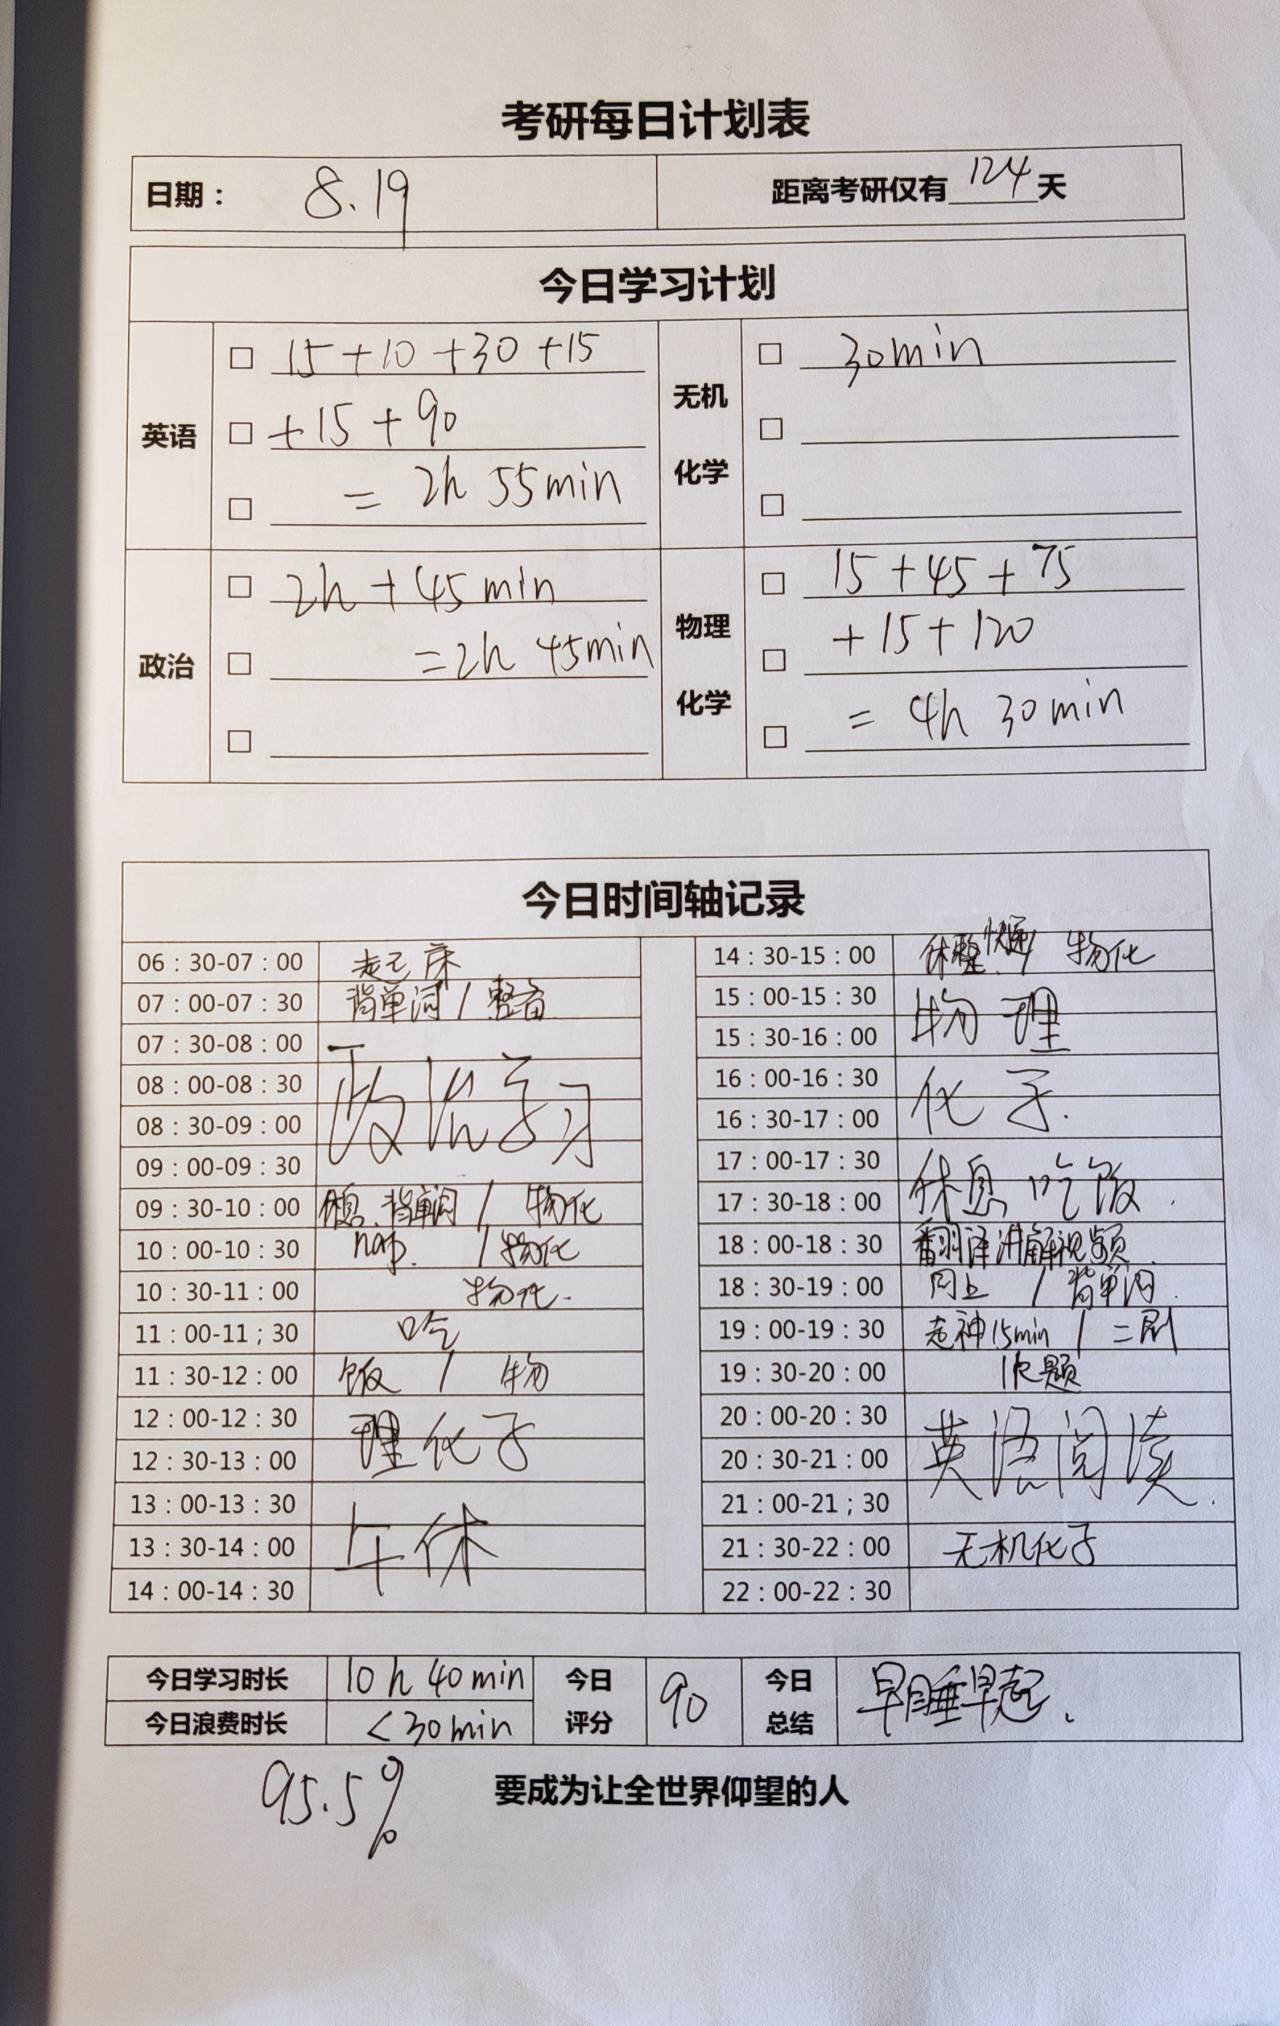 考研每日计划表
日期： 8.19 距离考研仅有 124 天
今日学习计划
英语
□ 15+10+30+15
□ +15+90
□ = 2h 55min
无机
化学
□ 30min
□
□
政治
□ 2h+45min
□ =2h 45min
□
物理
化学
□ 15+45+75
□ +15+120
□ = 4h 30min
今日时间轴记录
06：30-07：00 起床
07：00-07：30 背单词 / 整备
07：30-08：00
08：00-08：30 政治学习
08：30-09：00
09：00-09：30
09：30-10：00 休息、背单词 / 物化
10：00-10：30 nap. / 物化
10：30-11：00 物化.
11：00-11；30 吃
11：30-12：00 饭 / 物
12：00-12：30 理化学
12：30-13：00
13：00-13：30
13：30-14：00 午休
14：00-14：30
14：30-15：00 休整、快递 / 物化
15：00-15：30 物理
15：30-16：00
16：00-16：30 化学.
16：30-17：00
17：00-17：30 休息 吃饭.
17：30-18：00
18：00-18：30 翻译讲解视频
18：30-19：00 同上 / 背单词.
19：00-19：30 走神15min / 二刷
19：30-20：00 题
20：00-20：30
20：30-21：00 英语阅读.
21：00-21；30
21：30-22：00 无机化学
22：00-22：30
今日学习时长 10h 40min
今日浪费时长 <30min
今日
评分
90
今日
总结
早睡早起.
95.5%
要成为让全世界仰望的人